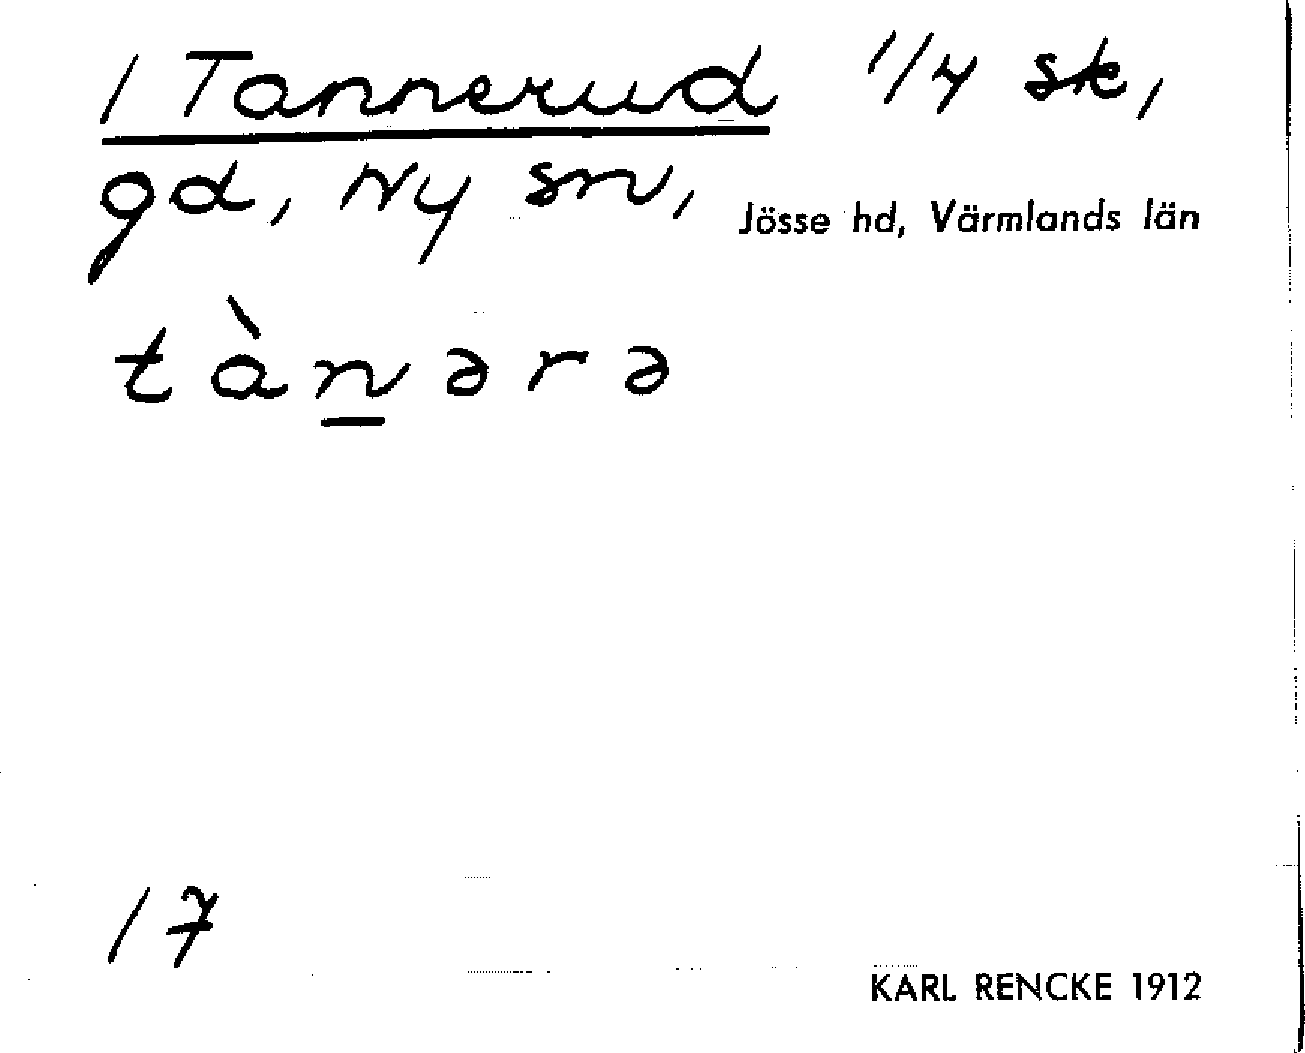 1 Tannerud 1/4 sk,
gd, Ny sn, Jösse hd, Värmlands län
tàn̲ərə
17
KARL RENCKE 1912